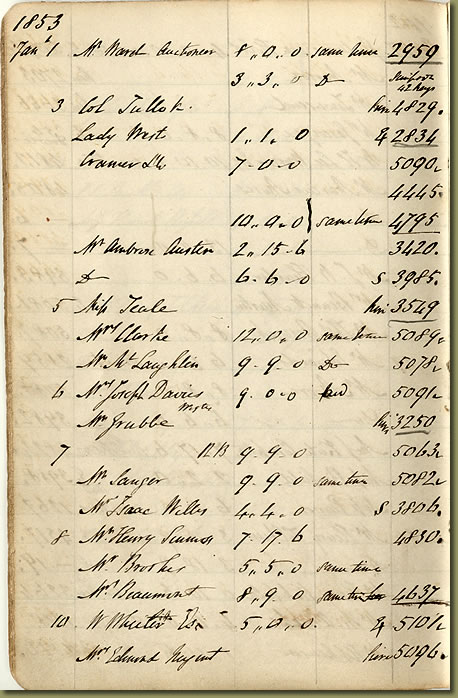 1853
Jany 1 Mr Ward Auctioneer 8,, 0,, 0 same time 2959
3,, 3,, 0 Do 42 Keys
3 Col Tulloh. Hire 4829.
Lady West 1,, 1,, 0 2834
Cramer & Co 7 - 0 - 0 5090
4445.
10,, 0,, 0 same time 4795
Mr Ambrose Austin 2,, 15 - 6 3420.
Do 6 - 6 - 0 S 3985.
5 Miss Teale Hire 3549
Mrs Clarke 12,, 0,, 0 same time 5089
Mr McLaughlin 9 - 9 0 Do 5078
6 Mr Joseph Davies 9 . 0 - 0 5091
Mrs Grubbe Hire 3250
7 1213 9 - 9 0 5063
Mr Sanger 9 - 9 0 same time 5082
Mr Isaac Willis 4,, 4,, 0 S 3806.
8 Mr Henry 7 - 17 - 6 4830.
Mr Brookes 5,, 5,, 0 same time
Mrs Beaumont 8,, 9 0 same time 4637
10 W Wheeler Esq 5,, 0,, 0. 5101
Mrs Edmund Nugent Hire 5096.